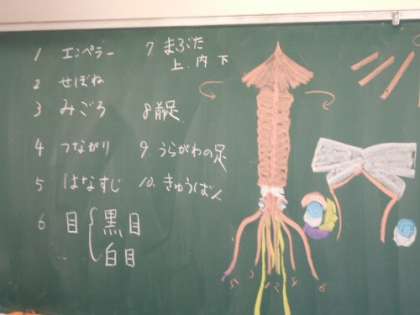 1 エンペラー
2 せぼね
3 みごろ
4 つながり
5 はなすじ
6 目 { 黒目
白目
7 まぶた
上、内 下
8 前足
9. うらがわの足
10. きゅうばん